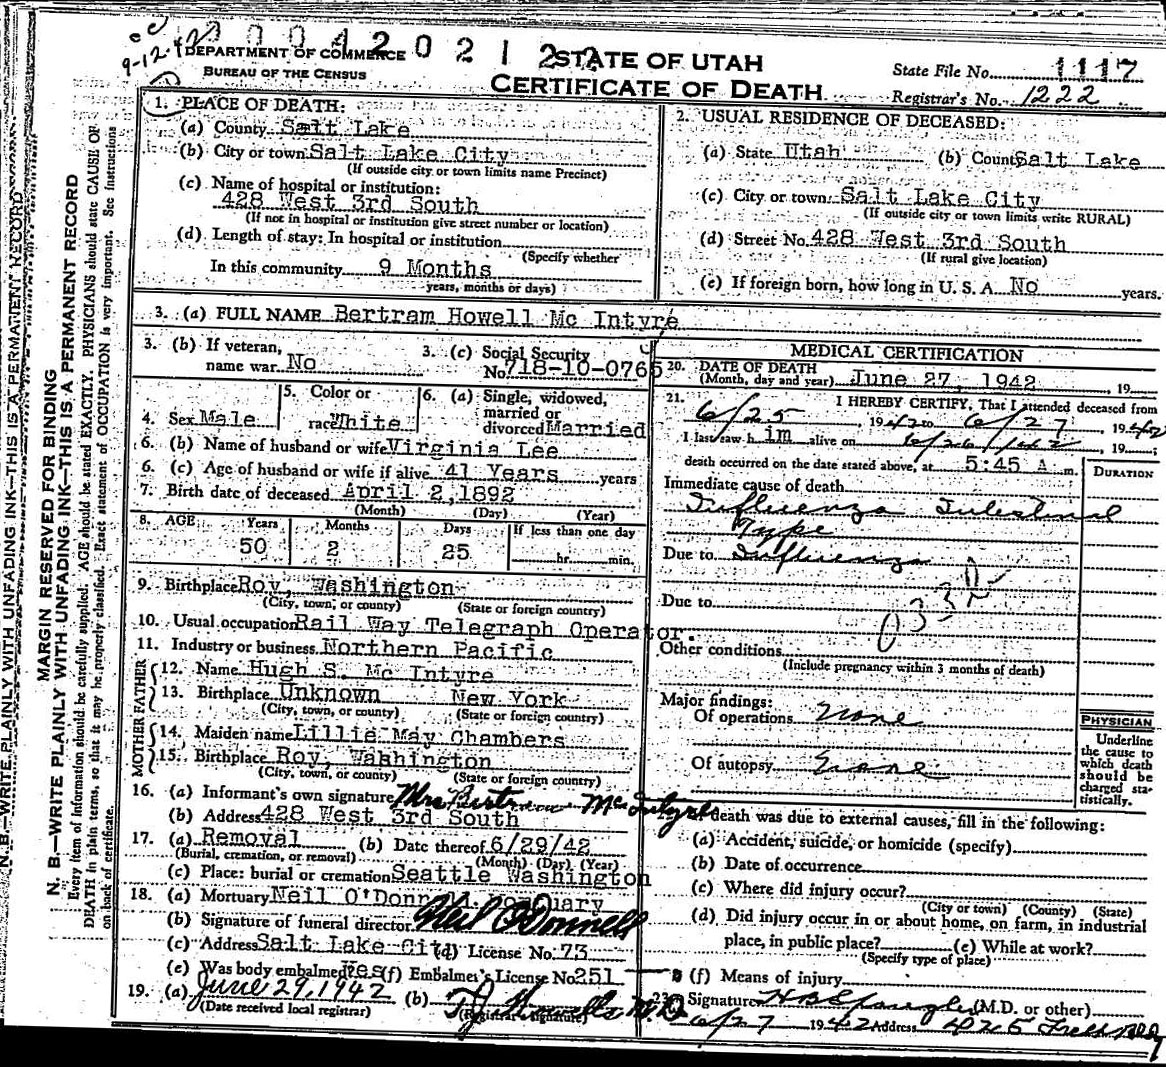 9-12-42 0004202122
DEPARTMENT OF COMMERCE
BUREAU OF THE CENSUS
STATE OF UTAH
CERTIFICATE OF DEATH
State File No. 1117
Registrar's No. 1222
1. PLACE OF DEATH:
(a) County Salt Lake
(b) City or town Salt Lake City
(If outside city or town limits name Precinct)
(c) Name of hospital or institution:
428 West 3rd South
(If not in hospital or institution give street number or location)
(d) Length of stay: In hospital or institution
(Specify whether
In this community 9 Months
years, months or days)
2. USUAL RESIDENCE OF DECEASED:
(a) State Utah (b) County Salt Lake
(c) City or town Salt Lake City
(If outside city or town limits write RURAL)
(d) Street No. 428 West 3rd South
(If rural give location)
(e) If foreign born, how long in U. S. A. No years.
3. (a) FULL NAME Bertram Howell Mc Intyre
3. (b) If veteran,
name war No
3. (c) Social Security
No. 718-10-0765
4. Sex Male
5. Color or
race White
6. (a) Single, widowed,
married or
divorced Married
6. (b) Name of husband or wife Virginia Lee
6. (c) Age of husband or wife if alive 41 Years years
7. Birth date of deceased April 2, 1892
(Month) (Day) (Year)
8. AGE Years Months Days If less than one day
50 2 25 hr. min.
9. Birthplace Roy, Washington
(City, town, or county) (State or foreign country)
10. Usual occupation Rail Way Telegraph Operator.
11. Industry or business Northern Pacific
FATHER
12. Name Hugh S. Mc Intyre
13. Birthplace Unknown New York
(City, town, or county) (State or foreign country)
MOTHER
14. Maiden name Lillie May Chambers
15. Birthplace Roy, Washington
(City, town, or county) (State or foreign country)
16. (a) Informant's own signature Mrs Bertram Mc Intyre
(b) Address 428 West 3rd South
17. (a) Removal (b) Date thereof 6/29/42
(Burial, cremation, or removal) (Month) (Day) (Year)
(c) Place: burial or cremation Seattle Washington
18. (a) Mortuary Neil O'Donn
(b) Signature of funeral director Neil O'Donnell
(c) Address Salt Lake City (d) License No. 73
(e) Was body embalmed? Yes (f) Embalmer's License No. 251
19. (a) June 29, 1942 (b) M.D.
(Date received local registrar) (Registrar's signature)
MEDICAL CERTIFICATION
20. DATE OF DEATH
(Month, day and year) June 27, 1942, 19
21. I HEREBY CERTIFY, That I attended deceased from
6/25 1942 to 6/27, 1942
I last saw h im alive on 6/26/42, 19 ;
death occurred on the date stated above, at 5:45 A m.
DURATION
Immediate cause of death
Influenza Intestinal
Type
Due to Influenza
Due to
033
Other conditions
(Include pregnancy within 3 months of death)
Major findings:
Of operations none
Of autopsy none
PHYSICIAN
Underline
the cause to
which death
should be
charged sta-
tistically.
death was due to external causes, fill in the following:
(a) Accident, suicide, or homicide (specify)
(b) Date of occurrence
(c) Where did injury occur?
(City or town) (County) (State)
(d) Did injury occur in or about home, on farm, in industrial
place, in public place? (e) While at work?
(Specify type of place)
(f) Means of injury
23. Signature (M.D. or other)
6/27 1942 Address
N. B.—WRITE PLAINLY WITH UNFADING INK—THIS IS A PERMANENT RECORD
MARGIN RESERVED FOR BINDING
N. B.—WRITE PLAINLY WITH UNFADING INK—THIS IS A PERMANENT RECORD
Every item of information should be carefully supplied. AGE should be stated EXACTLY. PHYSICIANS should state CAUSE OF
DEATH in plain terms, so that it may be properly classified. Exact statement of OCCUPATION is very important. See instructions
on back of certificate.